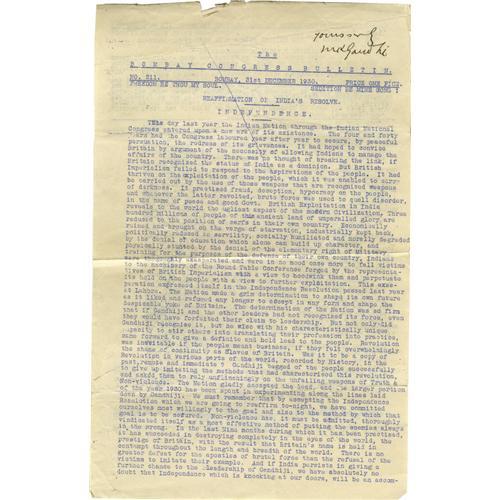 Yours sy
MK Gandhi
The
BOMBAY CONGRESS BULLETIN.
NO. 211. BOMBAY, 31st DECEMBER 1930. PRICE ONE PICE.
FREEDOM BE THOU MY SOUL. SEDITION BE MINE SONG !
REAFFIRMATION OF INDIA'S RESOLVE.
INDEPENDENCE.
This day last year the Indian Nation through the Indian National
Congress entered upon a new era of its existence. The four and forty
years had the Congress laboured year after year to secure, by peaceful
persuation, the redress of its grievances. It had hoped to convice
Britain by argument of the necessity of allowing Indians to manage the
affairs of the country. There was no thought of breaking the link, if
Britain recognised the status of India as a dominion. But British
Imperialism failed to respond to the aspirations of the people. It had
thrived on the exploitation of the people, which it was enabled to carry
be carried out by the use of those weapons that are recognized weapons
of darkness. It practised fraud, deception, hypocracy on the people,
and whenever the latter revolted, brute force was used to quell disorder,
in the name of peace and good Govt. British Exploitation in India
reveals to the world the ugliest aspect of the modern Civilization, Three
hundred Millions of people of this ancient land of unparalled glory are
reduced to the position of serfs in their own country. Economically
ruined, and brought on the verge of starvation, industrially kept back,
politically reduced to servility, socially humiliated and morally degraded
by the denial of education which alone can build up character, and
physically stunted by the denial of the elementary Right of Military
training for the purposes of the defence of their own country, Indians
were thoroughly exasperated and were in no mood once more to fall victims
to the machinery of the Round Table Conference forged by the representa-
tives of British Imperialism with a view to hoodwink them and perpetuate
its hold on the people with a view to further exploitation. This exas-
peration expressed itself in the Independence Resolution passed last year
at Lahore. The Nation made a grim determination to shape its own future
as it liked and refused any longer to accept in any form and shape the
despicable yoke of Britain. The determination of the Nation was so firm
that if Gandhiji and the other leaders had not recognised its force, even
they would have forfeited their claim to leadership. But not only did
Gandhiji recognise it, but he also with his characteristically unique
capacity to stir others into translating their profession into practice,
came forward to give a definite and bold lead to the people. Revolution
was inevitable if the people meant business, if they felt overwhelmingly
the shame of continuity as Slaves of Britain. Was it to be a copy of
Revolution in various parts of the world, recorded by history, in the
past, remote and immediate ? Gandhiji begged of the people successfully
to give up imitating the methods that had characterised this revolution,
and asked them to rely unflinchingly on the unfailing weapons of Truth &
Non-violence. The Nation gladly accepted the lead, and the larger portion
of the year 1930 has been spent in experimenting along the lines laid
down by Gandhiji. We must remember that by accepting the Independence
Resolution which we are going to reaffirm to-night, we have committed
ourselves most willingly to the goal and also to the method by which that
goal is to be secured. Non-violence has, it must be admitted, thoroughly
vindicated itself as a most effective method of putting the enemies always
in the wrong. In the last Nine months during which it has been practised,
it has succeeded in destroying completely in the eyes of the world, the
prestige of Britain, with the result that Britain's name is held in
contempt throughout the length and breadth of the world. There is no
greater defeat for the apostles of brutal force than the refusal of the
victims to imitate their example. And if India persists in giving a
further chance to the leadership of Gandhiji, we have absolutely no
doubt that Independence which is knocking at our doors, will be an accom-